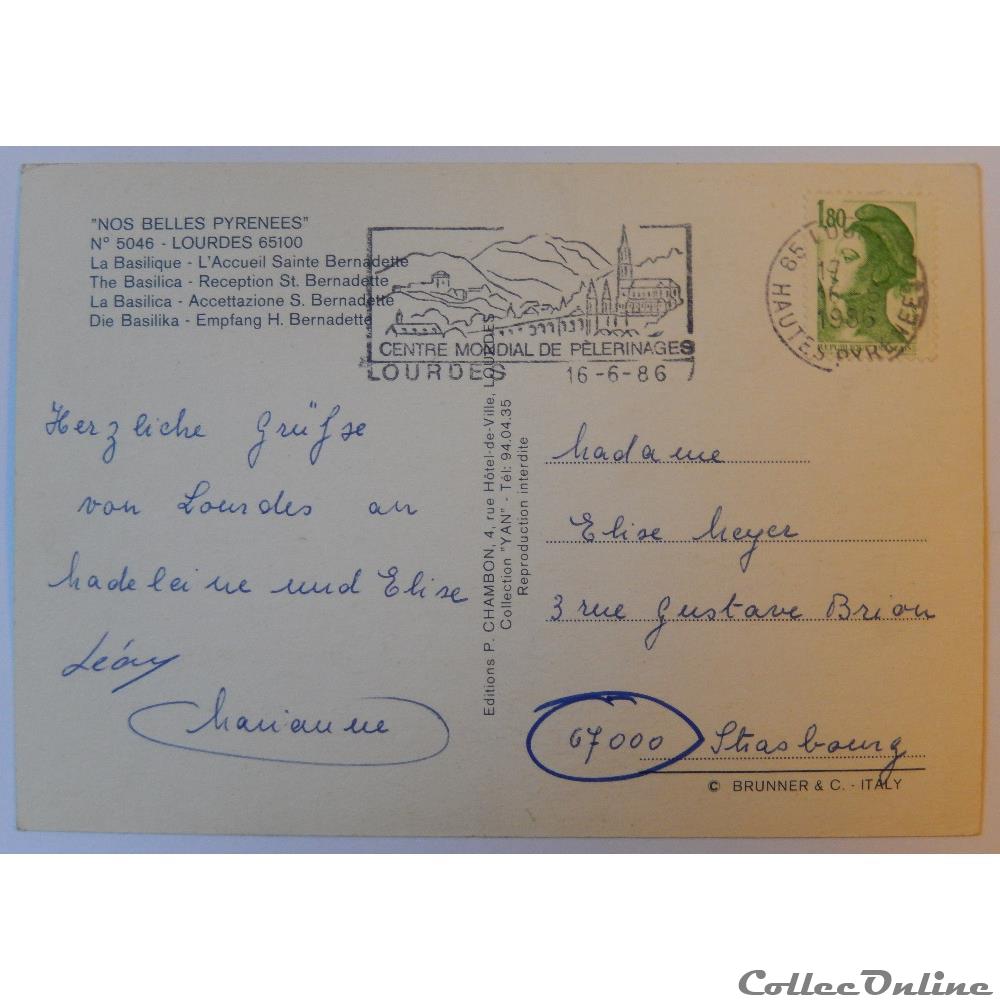 "NOS BELLES PYRENEES"
N° 5046 - LOURDES 65100
La Basilique - L'Accueil Sainte Bernadette
The Basilica - Reception St. Bernadette
La Basilica - Accettazione S. Bernadette
Die Basilika - Empfang H. Bernadette
CENTRE MONDIAL DE PÈLERINAGES
LOURDES 16-6-86
1,80
65 LOU
17
1986
HAUTES PYRENEES
Herzliche Grüße
von Lourdes an
Madeleine und Elise
Léony
Marianne
Editions P. CHAMBON, 4, rue Hôtel-de-Ville, LOURDES
Collection "YAN" - Tél: 94.04.35
Reproduction interdite
Madame
Elise Meyer
3 rue Gustave Brion
67000 Strasbourg
© BRUNNER & C. - ITALY
CollecOnline